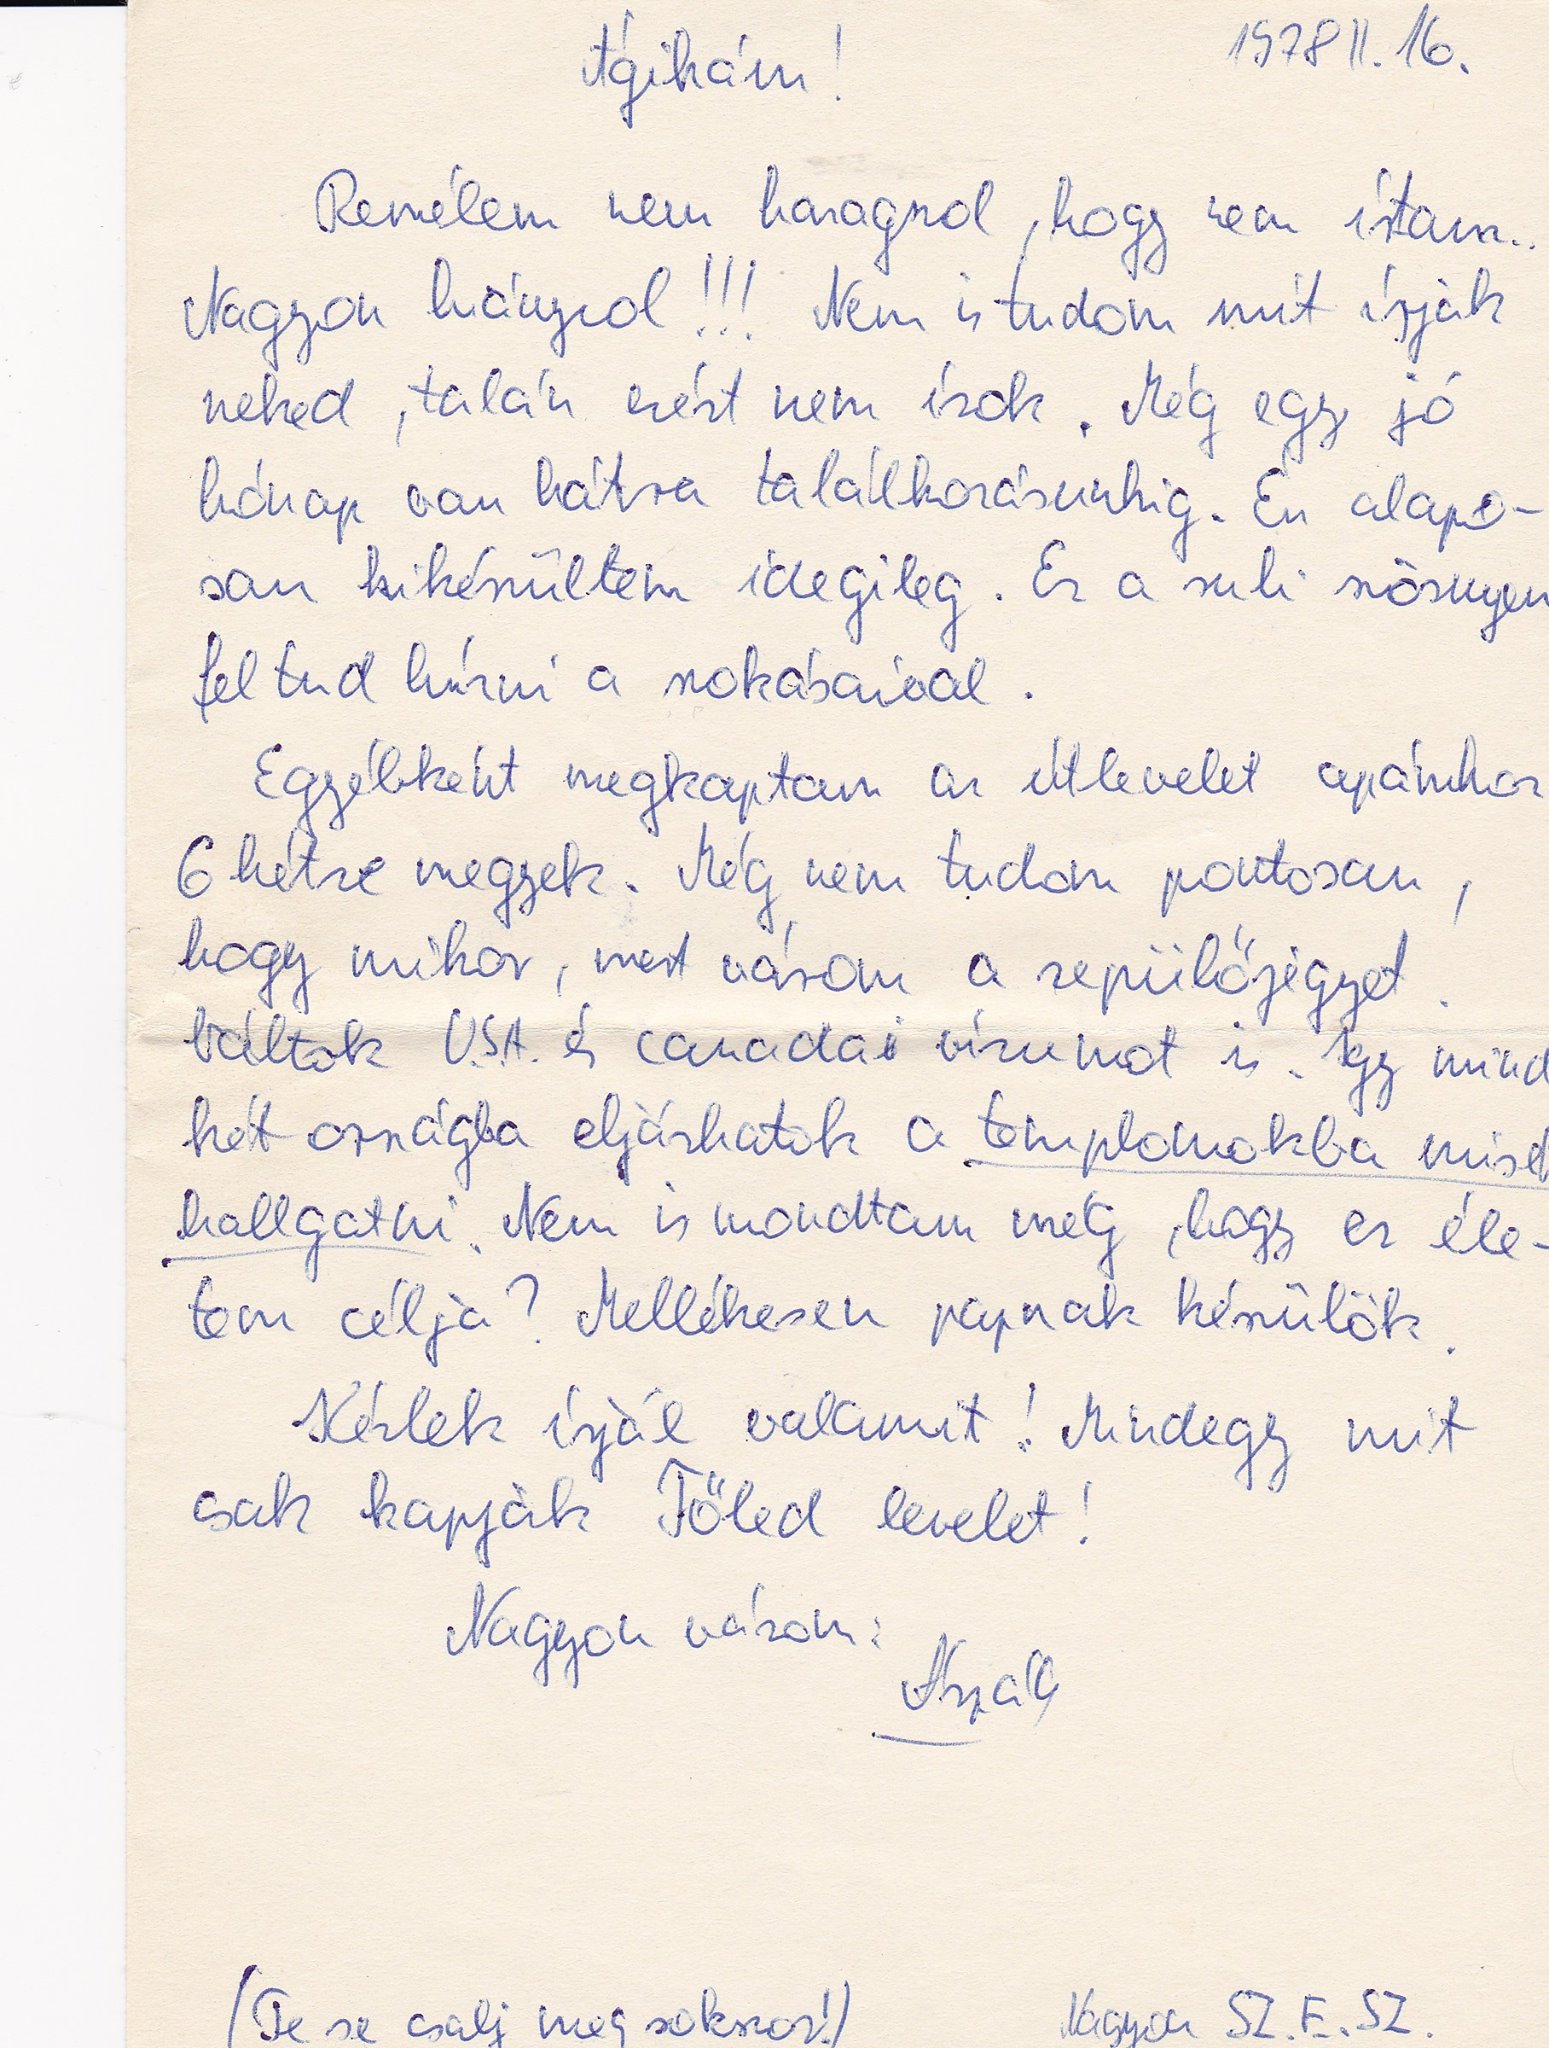 1978 II. 16.
Ágikám!
Remélem nem haragszol, hogy nem írtam..
Nagyon hiányzol!!! Nem is tudom mit írják
neked, talán ezért nem írok. Még egy jó
hónap van hátra találkozásunkig. Én alapo-
san kikészültem idegileg. Ez a suli szörnyen
fel tud húzni a szokásaival.
Egyébként megkaptam az útlevelet apámhoz
6 hétre megyek. Még nem tudom pontosan,
hogy mikor, mert várom a repülőjegyet.
Váltok U.S.A. és canadai vízumot is. Így mind
két országba eljárhatok a templomokba misét
hallgatni. Nem is mondtam még, hogy ez éle-
tem célja? Mellékesen papnak készülök.
Kérlek írjál valamit! Mindegy mit
csak kapják Tőled levelet!
Nagyon várom:
(Te se csalj meg sokszor!)
Nagyon SZ.E.SZ.